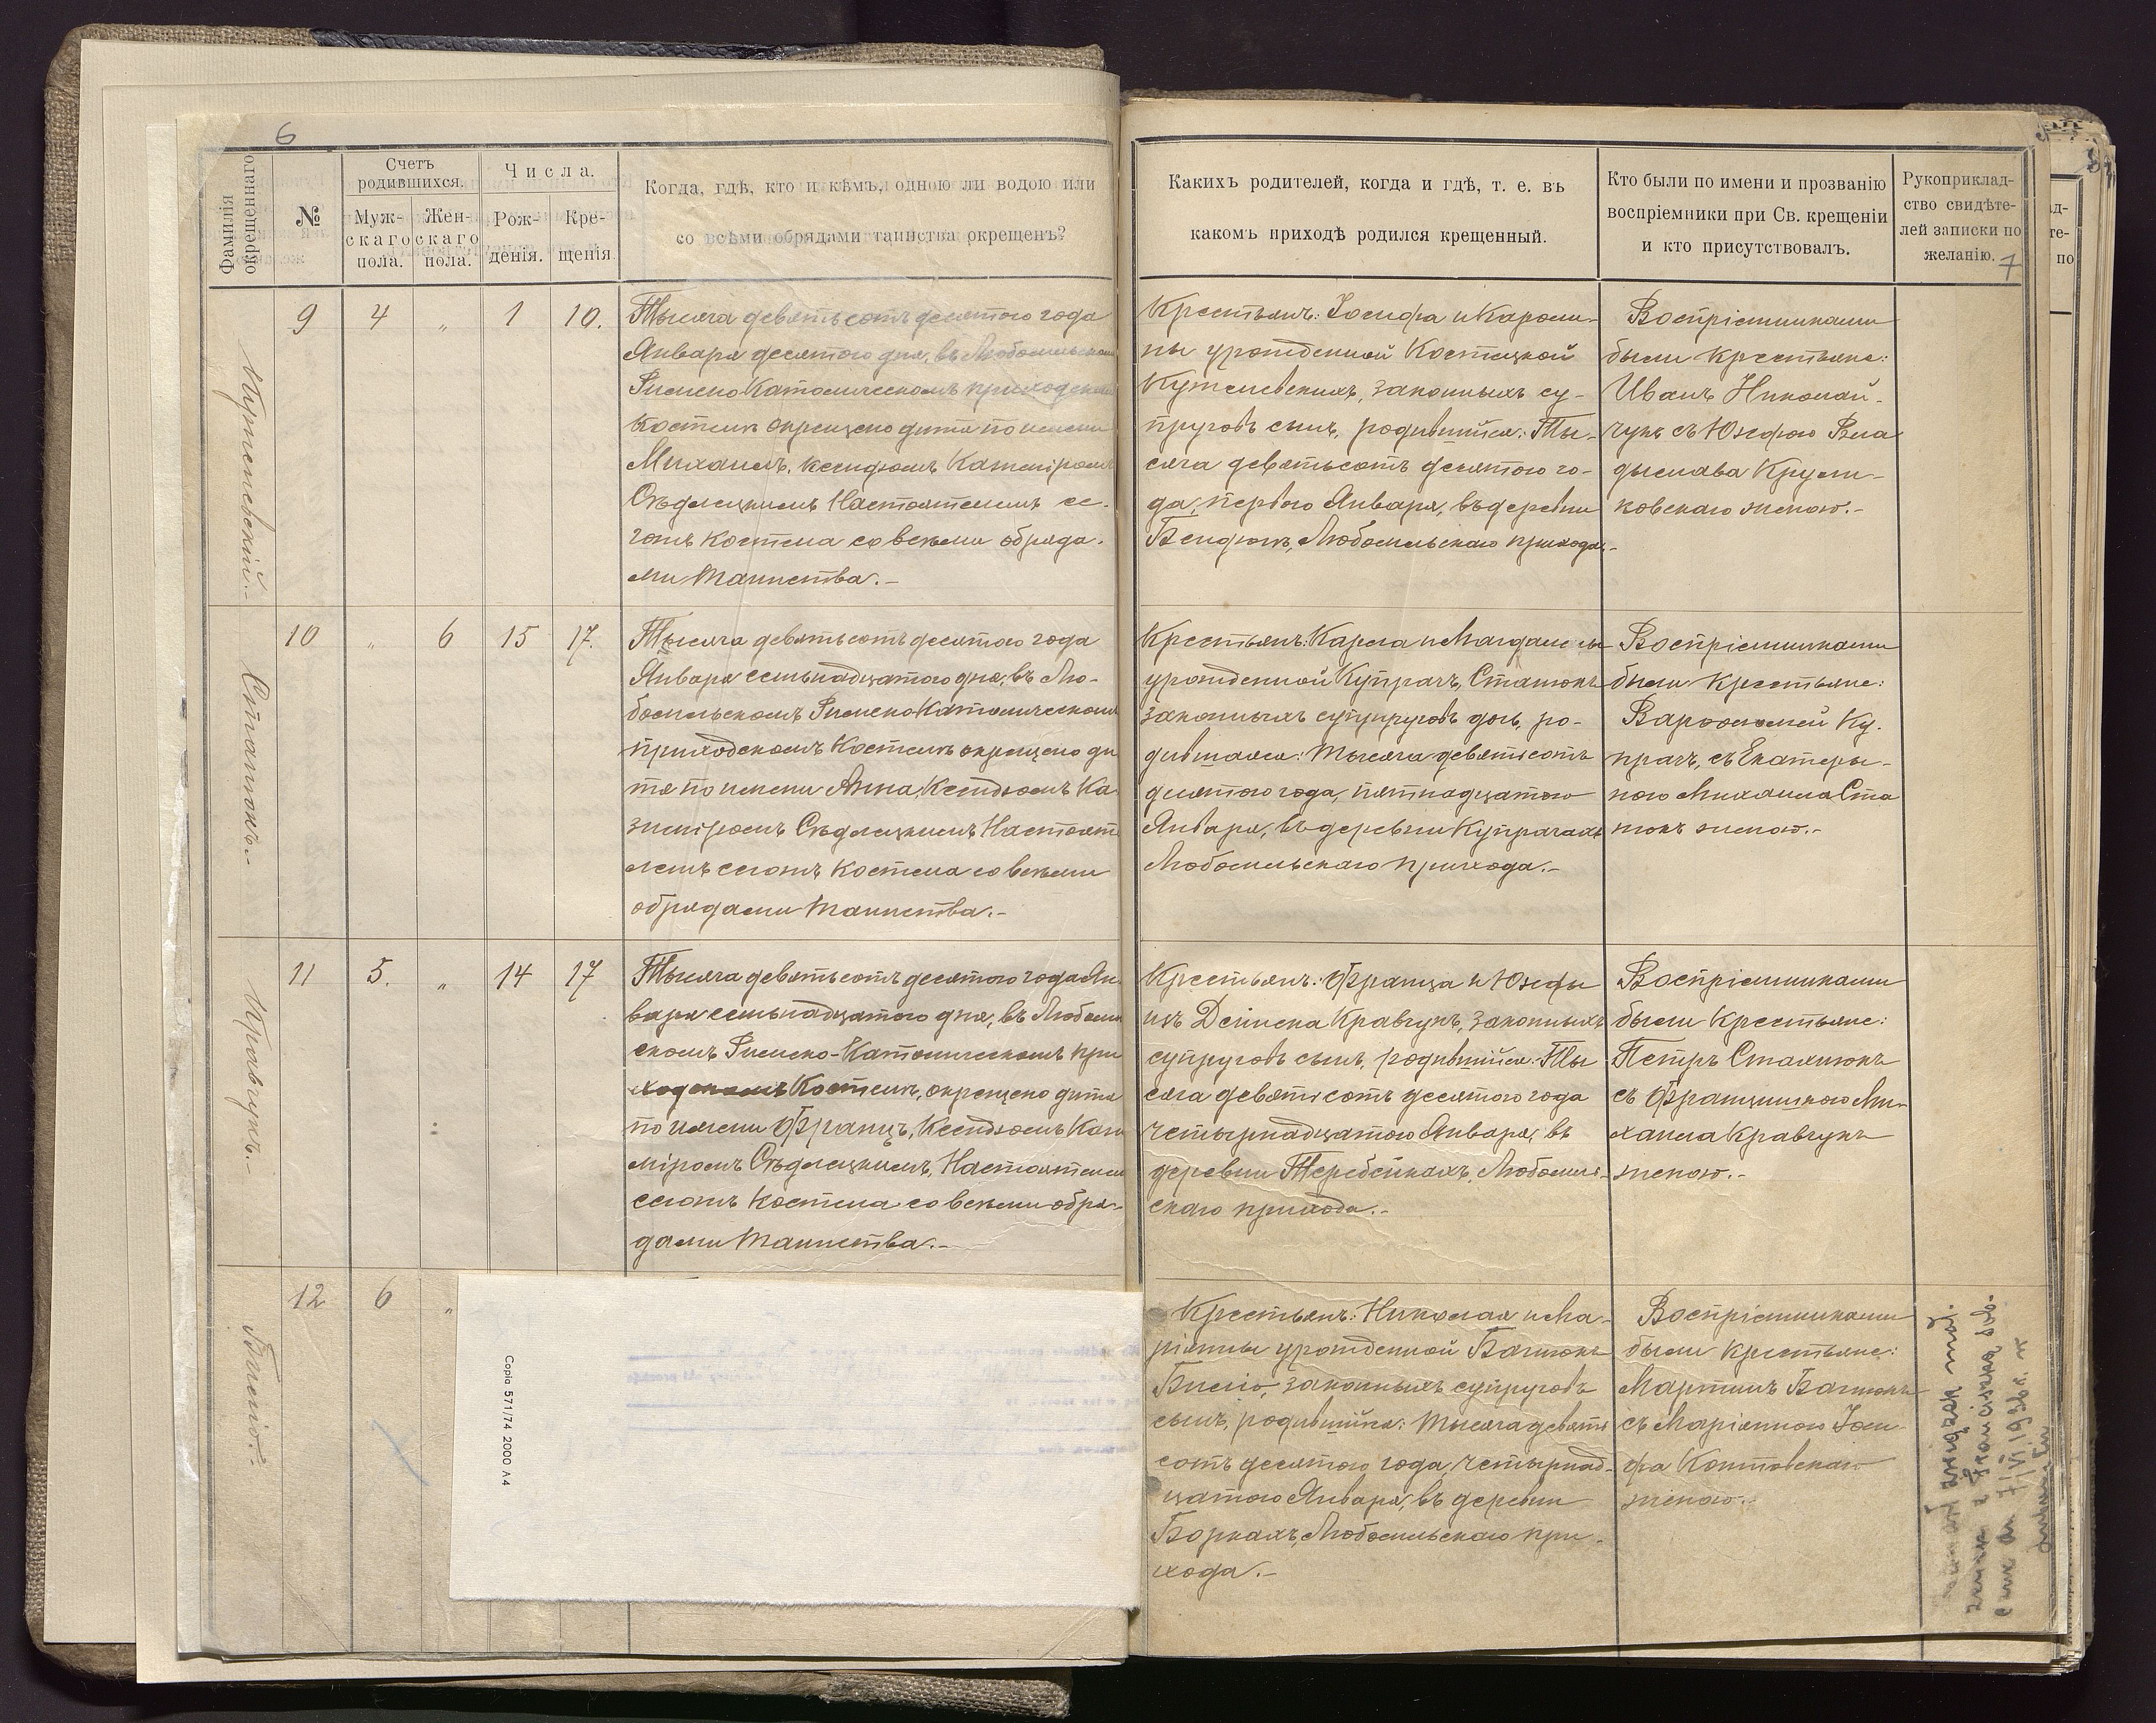 6
Фамилія окрещеннаго
№
Счетъ родившихся.
Мужскаго пола.
Женскаго пола.
Числа.
Рожденія.
Крещенія
Когда, гдѣ, кто и кѣмъ, одною ли водою или
со всѣми обрядами таинства окрещенъ?
9
4
„
1
10.
Тысяча девятьсотъ десятого года
Января десятого дня, въ Любомльскомъ
Римско Католическомъ приходскомъ
Костелѣ окрещено дитя по имени
Михаилъ, Ксендзомъ
Сѣдлецкимъ Настоятелемъ се-
гожъ Костела со всѣми обряда-
ми Таинства.-
10
„
6
15
17.
Станюкъ.-
Тысяча девятьсотъ десятого года
Января семьнадцатого дня, въ Лю-
бомльскомъ Римско Католическомъ
приходскомъ Костелѣ окрещено ди
тя по имени Анна, Ксендзомъ Ка-
зиміромъ Сѣдлецкимъ Настояте
лемъ сегожъ Костела со всѣми
обрядами Таинства.-
11
5.
„
14
17
Кравчукъ.-
Тысяча девятьсотъ десятого года Ян
варя семьнадцатого дня, въ Любомл
скомъ Римско-Католическомъ при
ходскомъ Костелѣ, окрещено дитя
по имени Францъ, Ксендзомъ Кази
міромъ Сѣдлецкимъ, Настоятелем
сегожъ Костела со всѣми обря-
дами Таинства.-
12
6
„
Copia 571/74 2000 A4
Какихъ родителей, когда и гдѣ, т. е. въ
какомъ приходѣ родился крещенный.
Кто были по имени и прозванію
воспріемники при Св. крещеніи
и кто присутствовалъ.
Рукоприклад-
ство свидѣте-
лей записки по
желанію.
7
Крестьянъ: Іосифа и Кароли-
ны урожденной Костецкой
законныхъ су-
пруговъ сынъ, родившійся: Ты-
сяча девятьсотъ десятого го-
да, первого Января, въ деревни
Любомльскаго прихода.-
Воспріемниками
были крестьяне:
Иванъ Николай-
чукъ съ Юзефою Вла
дыслава
ковскаго женою.-
Крестьянъ: Карла и Магдалены
урожденной Купрачъ, Станюкъ
законныхъ супруговъ дочь, ро-
дившаяся: Тысяча девятьсотъ
десятого года, пятнадцатого
Января, въ деревни Купрачахъ
Любомльскаго прихода.-
Воспріемниками
были Крестьяне:
Варфоломей Ку-
прачъ, съ Екатеры-
ною Михаила Ста
нюкъ женою.-
Крестьянъ: Франца и Юзефы
изъ Кравчукъ, законныхъ
супруговъ сынъ, родившійся: Ты
сяча девятьсотъ десятого года
четырнадцатого Января, въ
деревни Теребейкахъ, Любомль-
скаго прихода.-
Воспріемниками
были Крестьяне:
Петръ Сталнюкъ
съ Францишкою Ми-
хаила Кравчукъ
женою.-
Крестьянъ: Николая и Ма-
ріянны урожденной
законныхъ супруговъ
сынъ, родившійся: Тысяча девять
сотъ десятого года, четырнад-
цатого Января, въ деревни
Боркахъ, Любомльскаго при-
хода.-
Воспріемниками
были Крестьяне:
Мартинъ
съ Маріянною Іоси
фа
женою.-